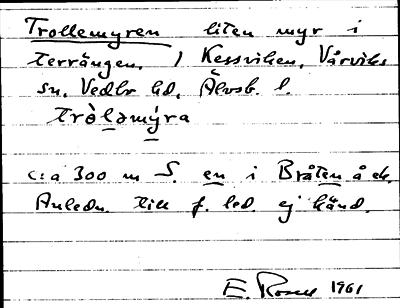 Trollemyren liten myr i
terrängen. / Kessviken, Vårviks
sn, Vedbo hd, Älvsb. l.
tròlamýra
c:a 300 m S. en i Bråten å ek.
Anledn. till f. led. ej känd.
E. Rosell 1961